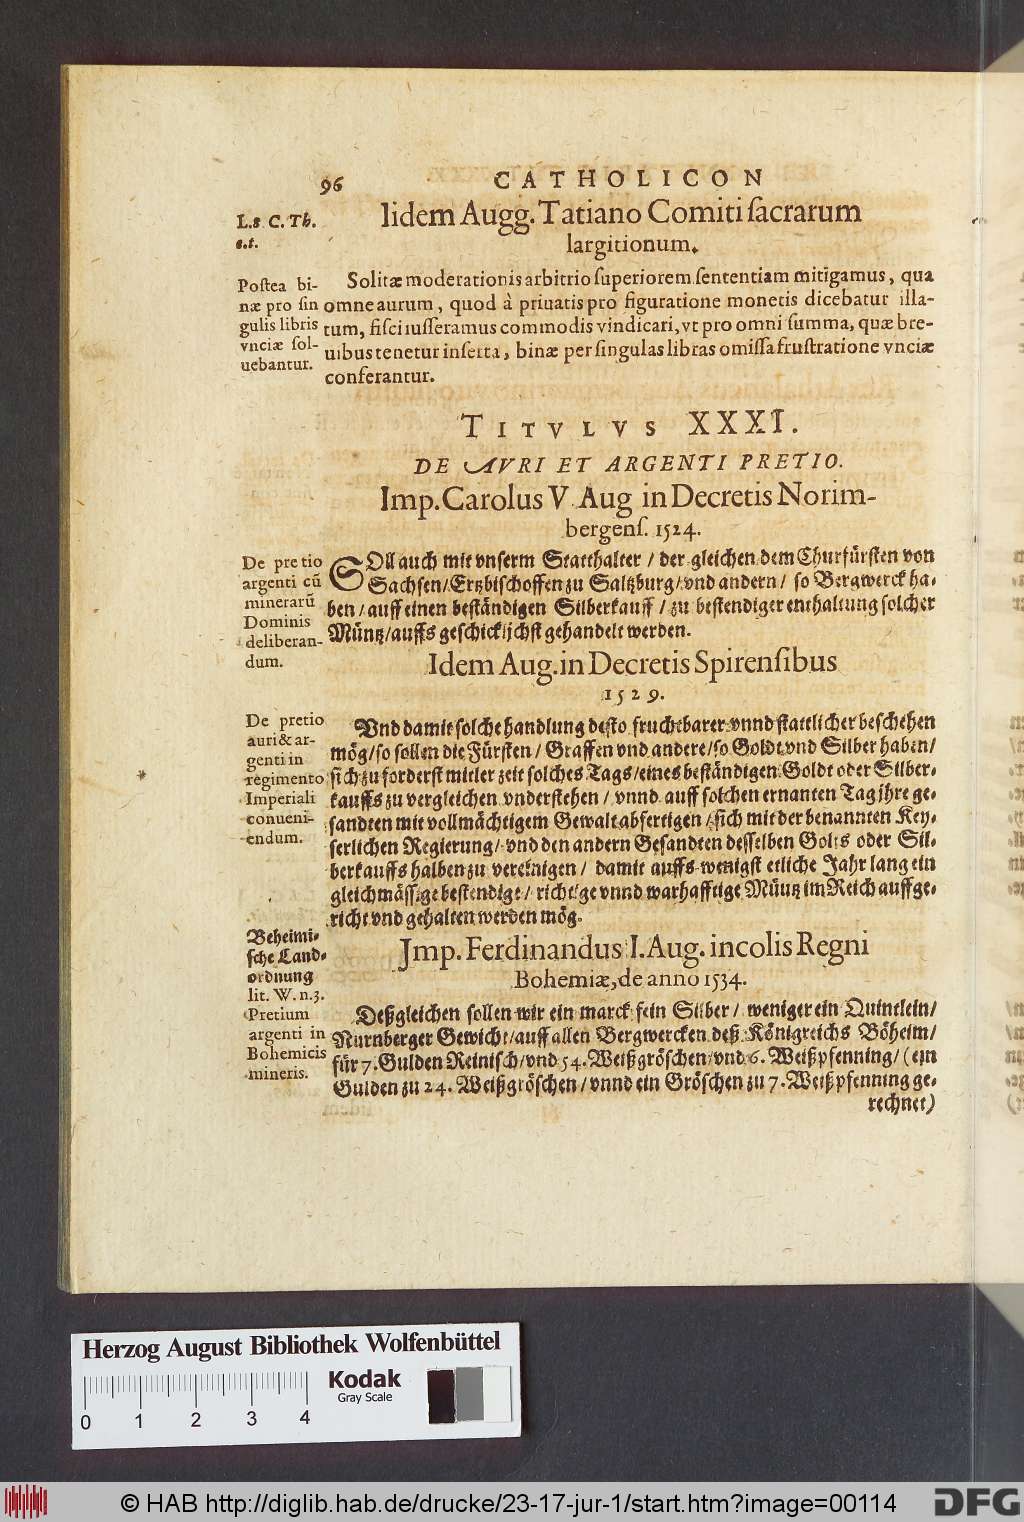 96 CATHOLICON
L. 8 C. Th.
e. t.
Iidem Augg. Tatiano Comiti ſacrarum
largitionum.
Poſtea bi-
næ pro ſin
gulis libris
vnciæ ſol-
uebantur.
Solitæ moderationis arbitrio ſuperiorem ſententiam mitigamus, qua
omne aurum, quod à priuatis pro figuratione monetis dicebatur illa-
tum, fiſci iuſſeramus commodis vindicari, vt pro omni ſumma, quæ bre-
uibus tenetur inſerta, binæ per ſingulas libras omiſſa fruſtratione vnciæ
conferantur.
TITVLVS XXXI.
DE AVRI ET ARGENTI PRETIO.
Imp. Carolus V. Aug in Decretis Norim-
bergenſ. 1524.
De pretio
argenti cū
minerarū
Dominis
deliberan-
dum.
SOll auch mit vnſerm Statthalter / der gleichen dem Churfürſten von
Sachſen / Ertzbiſchoffen zu Saltzburg / vnd andern / ſo Bergwerck ha-
ben / auff einen beſtändigen Silberkauff / zu beſtendiger enthaltung ſolcher
Müntz / auffs geſchicklichſt gehandelt werden.
Idem Aug. in Decretis Spirenſibus
1529.
De pretio
auri & ar-
genti in
regimento
Imperiali
conueni-
endum.
Vnd damit ſolche handlung deſto fruchtbarer vnnd ſtattlicher beſchehen
mög / ſo ſollen die Fürſten / Graffen vnd andere / ſo Goldt vnd Silber haben /
ſich zu forderſt mitler zeit ſolches Tags / eines beſtändigen Goldt oder Silber-
kauffs zu vergleichen vnderſtehen / vnnd auff ſolchen ernanten Tag jhre ge-
ſandten mit vollmächtigem Gewalt abfertigen / ſich mit der benannten Key-
ſerlichen Regierung / vnd den andern Geſandten deſſelben Golts oder Sil-
berkauffs halben zu vereinigen / damit auffs wenigſt etliche Jahr lang ein
gleichmäſſige beſtendige / richtige vnnd warhafftige Müntz im Reich auffge-
richt vnd gehalten werden mög.
Beheimi-
ſche Land-
ordnung
lit. W. n. 3.
Pretium
argenti in
Bohemicis
mineris.
Imp. Ferdinandus I. Aug. incolis Regni
Bohemiæ, de anno 1534.
Deßgleichen ſollen wir ein marck fein Silber / weniger ein Quintlein /
Nürnberger Gewicht / auff allen Bergwercken deß Königreichs Böheim /
für 7. Gulden Reiniſch / vnd 54. Weißgröſchen / vnd 6. Weißpfenning / (ein
Gulden zu 24. Weißgröſchen / vnnd ein Gröſchen zu 7. Weißpfenning ge-
rechnet)
Herzog August Bibliothek Wolfenbüttel
Kodak
Gray Scale
0 1 2 3 4
© HAB http://diglib.hab.de/drucke/23-17-jur-1/start.htm?image=00114
DFG